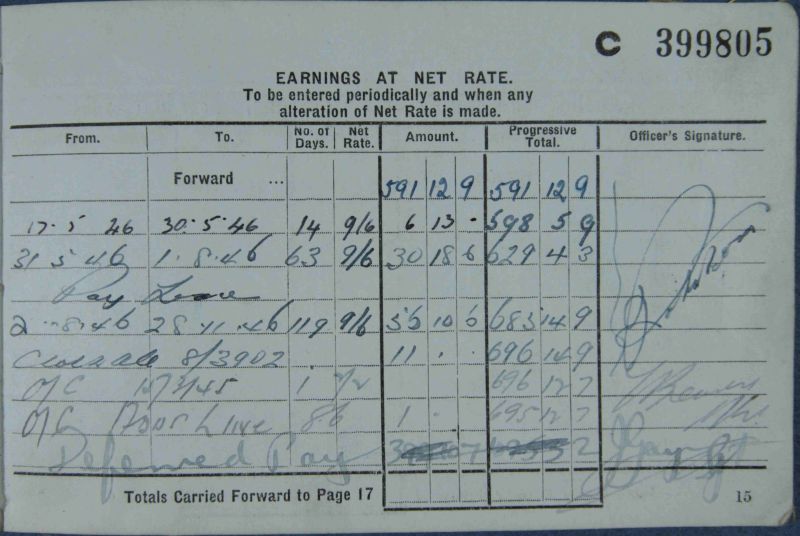 C 399805
EARNINGS AT NET RATE.
To be entered periodically and when any
alteration of Net Rate is made.
From. To. No. of Days. Net Rate. Amount. Progressive Total. Officer's Signature.
Forward ... 591 12 9 591 12 9
17.5 46 30.5.46 14 9/6 6 13 . 598 5 9
31 5 46 1.8.46 63 9/6 30 18 6 629 4 3
Pay
2.8.46 28.11.46 119 9/6 56 10 6 685 14 9
8/3902 11 . 696 14 9
O/C 1 696 12 7
O/C 1 . 695 12 7
Deferred Pay
Totals Carried Forward to Page 17
15